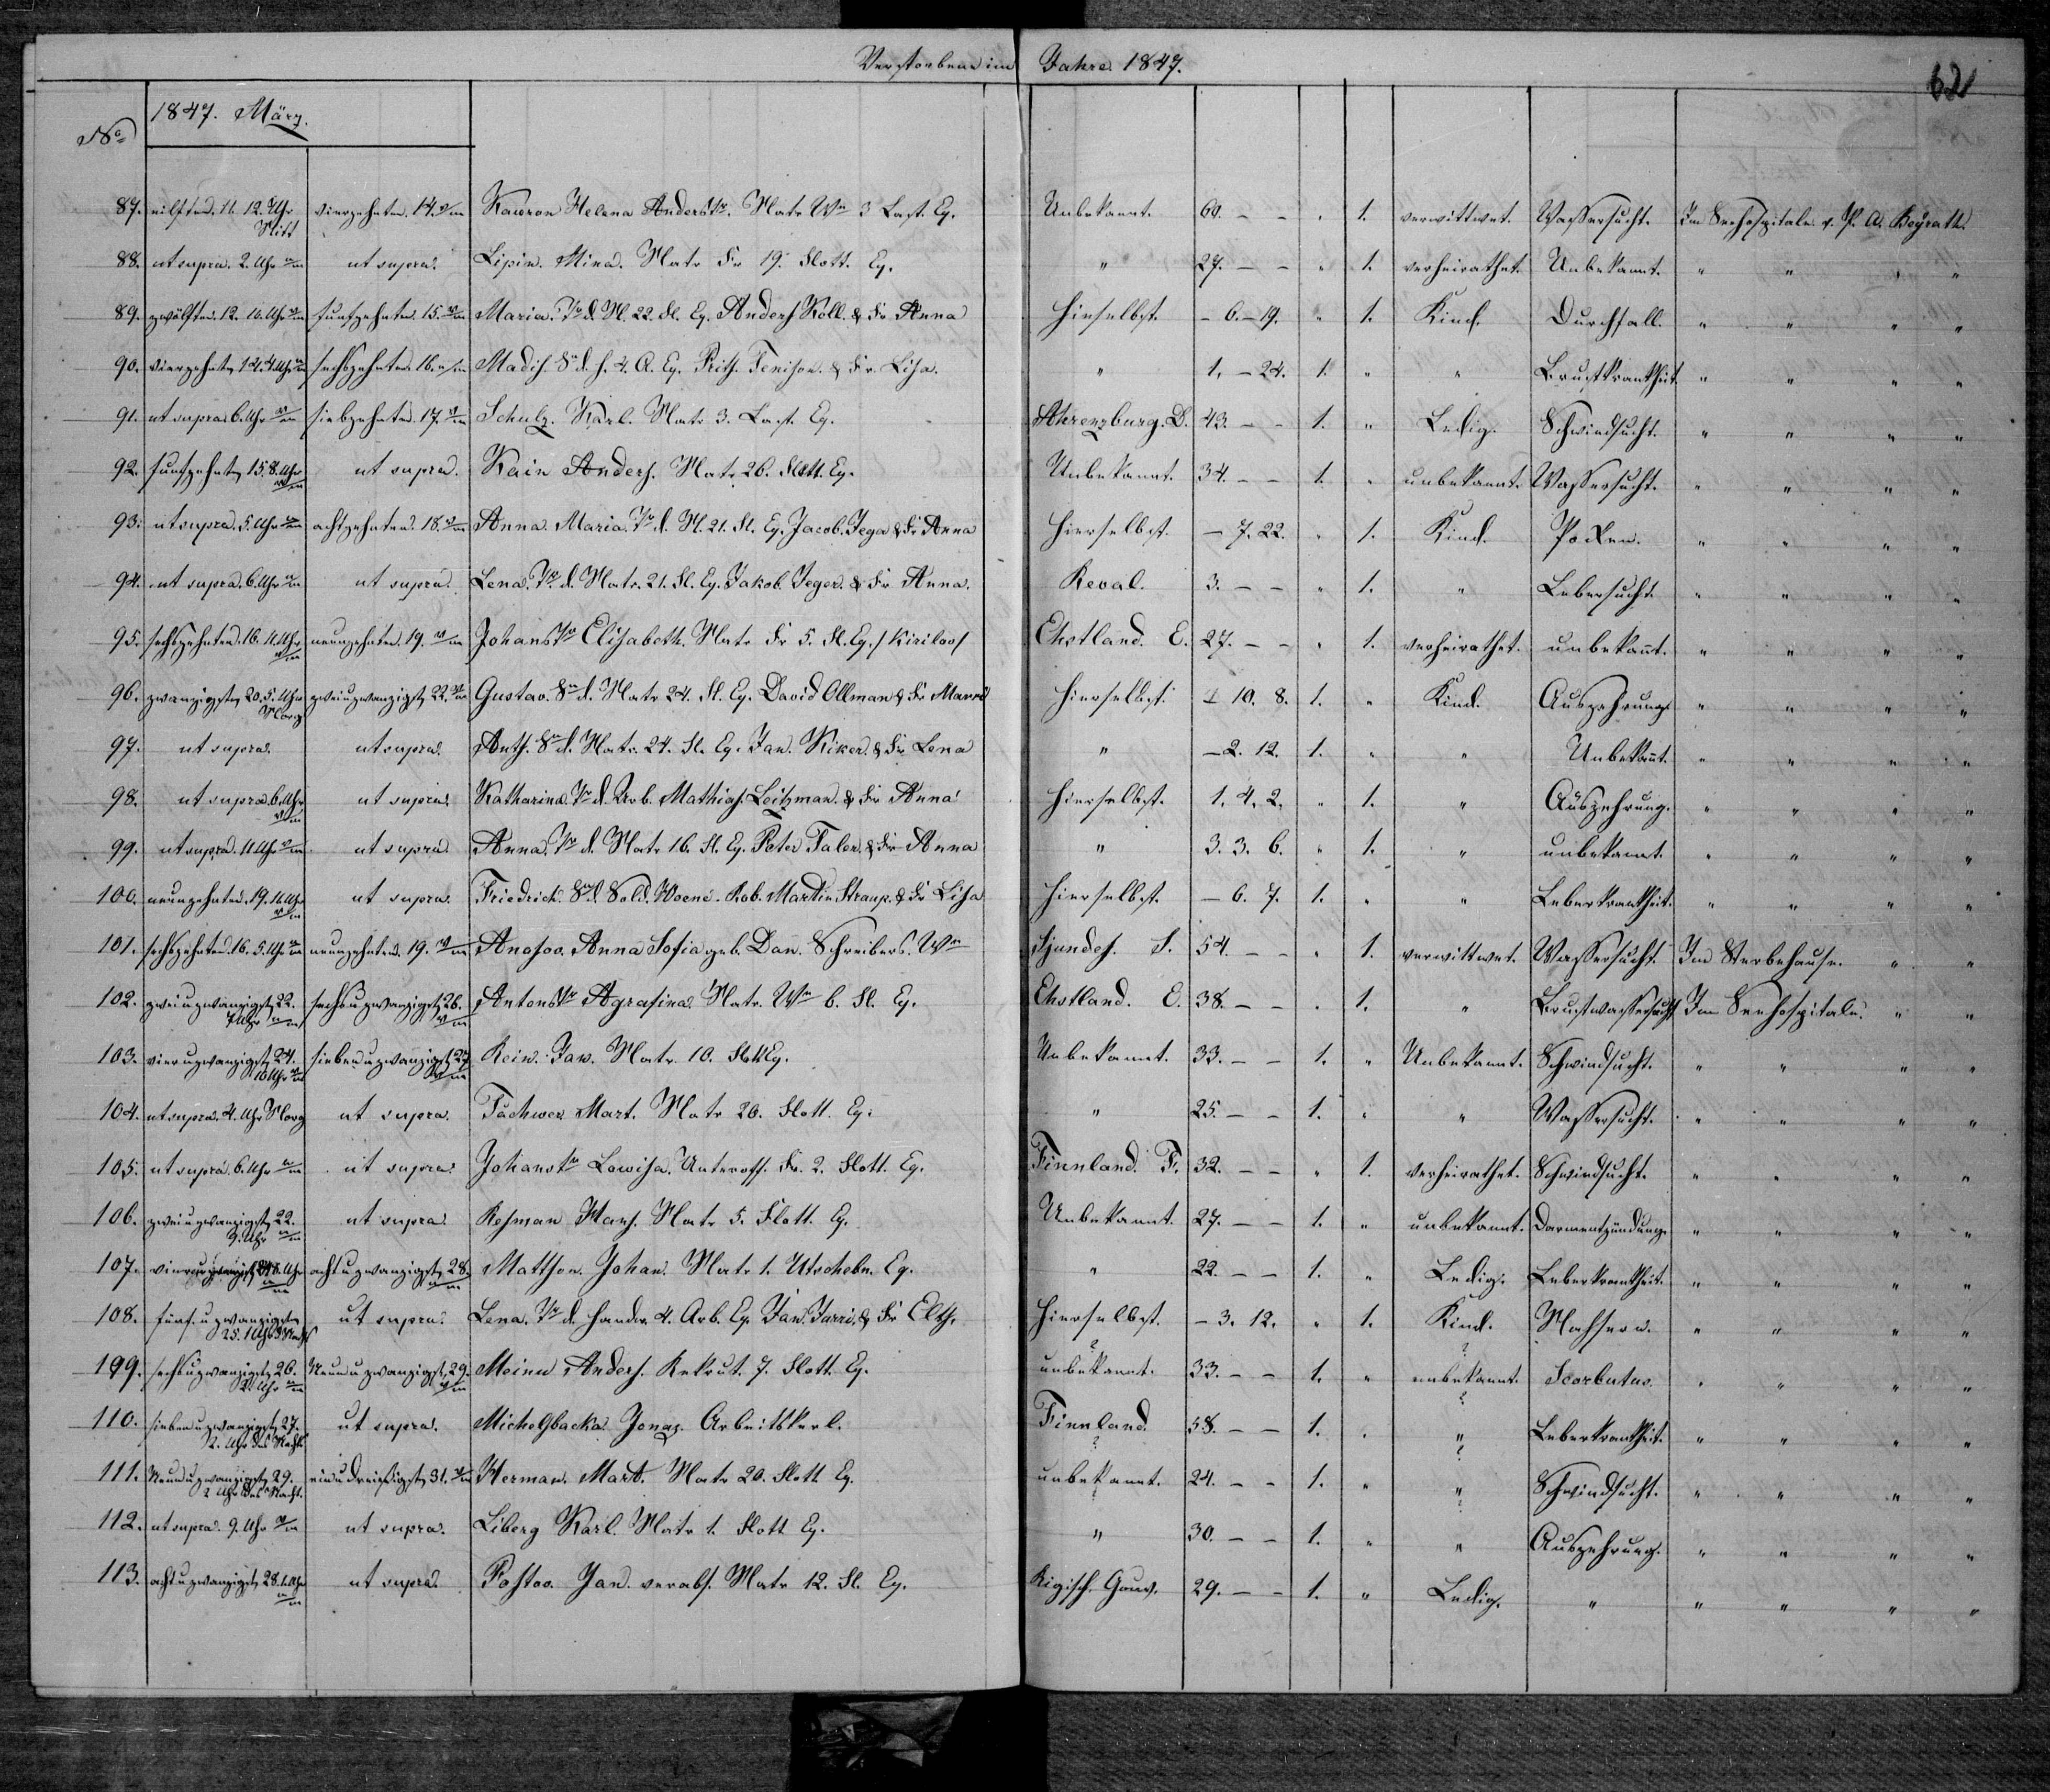 Verstorbene im Jahre 1847.
621
No 1847. März.
87. eilften. 11. 12. Uhr Mitt vierzehnten. 14. v/m Kawron Helena Anders Tr. Matr. Wn 3 Last. Eq. Unbekannt. 60. - - " 1. verwittwet. Wassersucht. Im Seehospitale. v. P. A. Keyrath.
88. ut supra. 2. Uhr n/m ut supra. Lipin. Mina. Matr Fr 19. Flott. Eq. " 27. - - " 1. verheirathet. Unbekannt. " " " "
89. zwölften. 12. 10. Uhr v/m funfzehnten. 15. v/m Maria. Tr d. M. 22. Fl. Eq. Anders Koll. & Fr Anna hieselbst. - 6. - 19. " 1. Kind. Durchfall. " " " "
90. vierzehnten 14. 4. Uhr n/m sechszehnten. 16. v/m Madis. Sn d. H. 4. A. Eq. Prits. Tenison. & Fr. Lisa. " 1. - 24. 1. " " Brustkrankheit. " " " "
91. ut supra 6. Uhr v/m siebzehnten. 17. v/m Schulz. Karl. Matr 3. Last. Eq. Ahrenzburg. D. 43. - - 1. " Ledig. Schwindsucht. " " " "
92. funfzehnten 15. 8. Uhr v/m ut supra. Kain Anders. Matr. 26. Flott. Eq. Unbekannt. 34. - - 1. " unbekannt. Wassersucht. " " " "
93. ut supra. 5. Uhr v/m achtzehnten. 18. v/m Anna. Maria. Tr d. M. 21. Fl. Eq. Jacob. Jega & Fr Anna hierselbst. - 7. 22. " 1. Kind. Pocken. " " " "
94. ut supra. 6. Uhr n/m ut supra. Lena. Tr d. Matr. 21. Fl. Eq. Jakob. Jeger. & Fr Anna. Reval. 3. - - " 1. " Lebersucht. " " " "
95. sechszehnten. 16. 11. Uhr v/m neunzehnten. 19. v/m Johans Tr Elisabeth. Matr Fr 5. Fl. Eq. / Kirilow / Ehstland. E. 27. - - " 1. verheirathet. unbekannt. " " " "
96. zwanzigsten 20. 5. Uhr Morg zweiuzwanzigst 22. v/m Gustav. Sn d. Matr 24. Fl. Eq. David Ollman & Fr Marri hierselbst. 1 10. 8. 1. " Kind. Auszehrung. " " " "
97. ut supra. ut supra. Ants. Sn d. Matr. 24. Fl. Eq. Jan. Kiker. & Fr Lena " - 2. 12. 1. " " Unbekannt. " " " "
98. ut supra 6. Uhr v/m ut supra. Katharina. Tr d. Arb. Mathias. Loitzman. & Fr Anna hierselbst. 1. 4. 2. " 1. " Auszehrung. " " " "
99. ut supra. 11 Uhr v/m ut supra Anna. Tr d. Matr 16. Fl. Eq. Peter Taler. & Fr Anna " 3. 3. 6. " 1. " unbekannt. " " " "
100. neunzehnten. 19. 11. Uhr v/m ut supra. Friedrich. Sn d. Sold. Woenè-Rab. Martin Straup. & Fr Lisa hierselbst. - 6. 7. 1. " " Leberkrankheit. " " " "
101. sechszehnten. 16. 5. Uhr n/m neunzehnten. 19. v/m Anasoo. Anna Sofia geb. Dan. Schreibers. Wn Sjundes. S. 54. - - " 1. verwittwet. Wassersucht. Im Sterbehause. " "
102. zweiuzwanzigst 22. 7 Uhr n/m sechsuzwanzigst 26. v/m Antons Tr Agrafina. Matr. Wn 6. Fl. Eq. Ehstland. E. 38. - - " 1. " Brustwassersucht Im Seehospitale. " "
103. vieruzwanzigst 24. 10 Uhr v/m siebenuzwanzigst 27. v/m Kein. Jaw. Matr. 10. Flott Eq. Unbekannt. 33. - - 1. " Unbekannt. Schwindsucht. " " " "
104. ut supra. 4. Uhr Morg ut supra. Tächwer Mart. Matr 26. Flott. Eq. " 25. - - 1. " " Wassersucht. " " " "
105. ut supra. 6. Uhr n/m ut supra. Johans Tr Lowisa. Unteroff. Fr. 2. Flott. Eq. Finnland. F. 32. - - " 1. verheirathet. Schwindsucht. " " " "
106. zweiuzwanzigst 22. 3. Uhr n/m ut supra Resman Hans. Matr 5. Flott. Eq. Unbekannt. 27. - - 1. " unbekannt. Darmentzündung. " " " "
107. vieruzwanzigst 24. Uhr n/m achtuzwanzigst 28. v/m Mattson. Johan. Matr 1. Utschebn. Eq. " 22. - - 1. " Ledig. Leberkrankheit. " " " "
108. fünf uzwanzigsten 25. 1 Uhr Nachts ut supra. Lena. Tr d. Handw. 4. Arb. Eq. Jan. Jarri. & Fr Elts. hierselbst. - 3. 12. " 1. Kind. Masern. " " " "
109. sechsuzwanzigst 26. 2. Uhr n/m Neunuzwanzigst, 29. v/m Meinn Anders. Rekrut. 7. Flott. Eq. unbekannt. 33. - - 1. " unbekannt. Scorbutus. " " " "
110. siebenuzwanzigst 27. 2. Uhr des Nachts ut supra. Michelsbacka Jonas. Arbeitskerl. Finnland. 58. - - 1. " " Leberkrankheit. " " " "
111. Neunuzwanzigst 29. 2 Uhr des Nacht. einudreißigst 31. v/m Herman. Mart. Matr 20. Flott Eq. unbekannt. 24. - - 1. " " Schwindsucht. " " " "
112. ut supra. 9. Uhr v/m ut supra. Liberg Karl. Matr 1. Flott Eq. " 30. - - 1. " " Auszehrung. " " " "
113. achtuzwanzigst 28. 1. Uhr n/m ut supra. Pastoo. Jan. verabs. Matr 12. Fl. Eq. Rigisch. Gouv. 29. - - 1. " Ledig. " " " " "